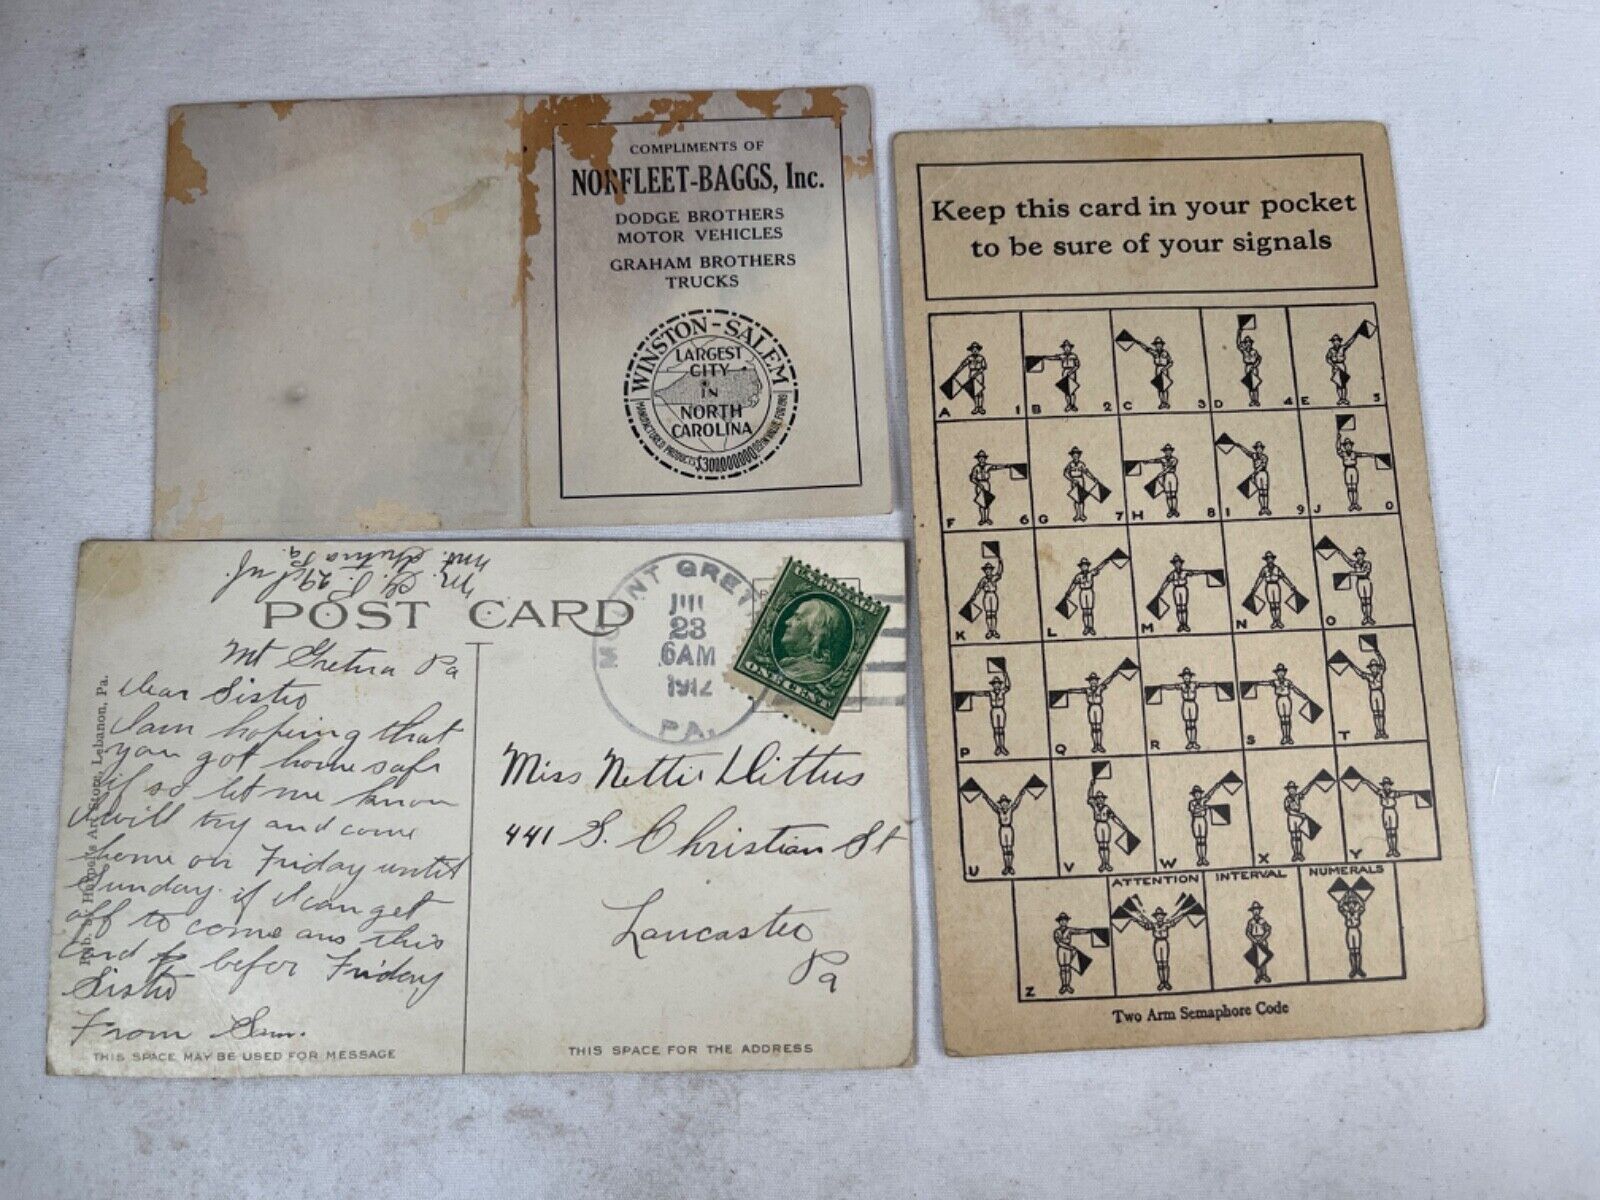 COMPLIMENTS OF
NORFLEET-BAGGS, Inc.
DODGE BROTHERS
MOTOR VEHICLES
GRAHAM BROTHERS
TRUCKS
WINSTON-SALEM
LARGEST
CITY
IN
NORTH
CAROLINA
MANUFACTURED PRODUCTS
Keep this card in your pocket
to be sure of your signals
A 1 B 2 C 3 D 4 E 5
F 6 G 7 H 8 I 9 J 0
K L M N O
P Q R S T
U V W X Y
ATTENTION INTERVAL NUMERALS
Z
Two Arm Semaphore Code
Mt. Gretna
Pa.
POST CARD
Mt Gretna Pa
Dear Sister
I am hoping that
you got home safe
if so let me know
I will try and come
home on Friday until
Sunday if I can get
off to come ans this
card befor Friday
Sister
From
THIS SPACE MAY BE USED FOR MESSAGE
Lebanon, Pa.
MOUNT GRET
23
6AM
1912
PA.
ONE CENT
Miss Nettie Dittus
441 S. Christian St
Lancaster
Pa
THIS SPACE FOR THE ADDRESS